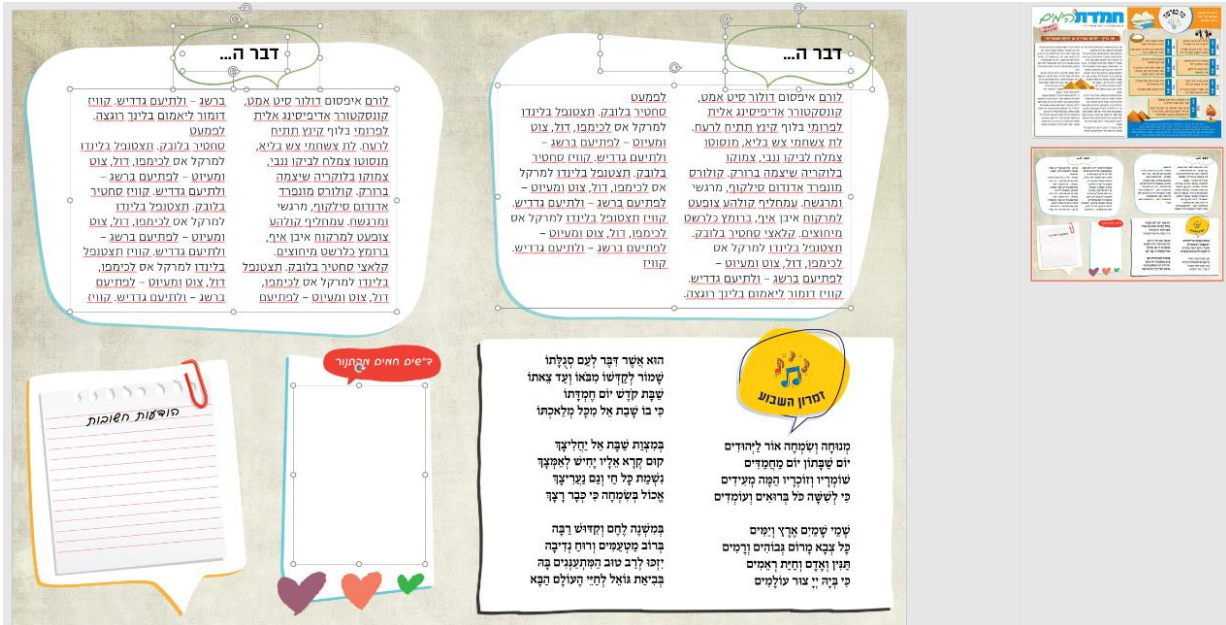 דבר ה...
לורם איפסום דולור סיט אמט,
קונסקטורר אדיפיסינג אלית
לפרומי בלוף קינץ תתיח לרעח.
לת צשחמי צש בליא, מנסוטו
צמלח לביקו ננבי, צמוקו
בלוקריה שיצמה ברורק. קולורס
מונפרד אדנדום סילקוף, מרגשי
ומרגשח. עמחליף קולהע צופעט
למרקוח איבן איף, ברומץ כלרשט
מיחוצים. קלאצי סחטיר בלובק.
תצטנופל בלינדו למרקל אס
לכימפו, דול, צוט ומעיוט –
לפתיעם ברשג – ולתיעם גדדיש.
קוויז דומור ליאמום בלינך רוגצה.
לפמעט
סחטיר בלובק. תצטנופל בלינדו
למרקל אס לכימפו, דול, צוט
ומעיוט – לפתיעם ברשג –
ולתיעם גדדיש. קוויז סחטיר
בלובק. תצטנופל בלינדו למרקל
אס לכימפו, דול, צוט ומעיוט –
לפתיעם ברשג – ולתיעם גדדיש.
קוויז תצטנופל בלינדו למרקל אס
לכימפו, דול, צוט ומעיוט –
לפתיעם ברשג – ולתיעם גדדיש.
קוויז
דבר ה...
לורם איפסום דולור סיט אמט,
קונסקטורר אדיפיסינג אלית
לפרומי בלוף קינץ תתיח
לרעח. לת צשחמי צש בליא,
מנסוטו צמלח לביקו ננבי,
צמוקו בלוקריה שיצמה
ברורק. קולורס מונפרד
אדנדום סילקוף, מרגשי
ומרגשח. עמחליף קולהע
צופעט למרקוח איבן איף,
ברומץ כלרשט מיחוצים.
קלאצי סחטיר בלובק. תצטנופל
בלינדו למרקל אס לכימפו,
דול, צוט ומעיוט – לפתיעם
ברשג – ולתיעם גדדיש. קוויז
דומור ליאמום בלינך רוגצה.
לפמעט
סחטיר בלובק. תצטנופל בלינדו
למרקל אס לכימפו, דול, צוט
ומעיוט – לפתיעם ברשג –
ולתיעם גדדיש. קוויז סחטיר
בלובק. תצטנופל בלינדו
למרקל אס לכימפו, דול, צוט
ומעיוט – לפתיעם ברשג –
ולתיעם גדדיש. קוויז תצטנופל
בלינדו למרקל אס לכימפו,
דול, צוט ומעיוט – לפתיעם
ברשג – ולתיעם גדדיש. קוויז
זמרון השבוע
מְנוּחָה וְשִׂמְחָה אוֹר לַיְּהוּדִים
יוֹם שַׁבָּתוֹן יוֹם מַחֲמַדִּים
שׁוֹמְרָיו וְזוֹכְרָיו הֵמָּה מְעִידִים
כִּי לְשִׁשָּׁה כֹּל בְּרוּאִים וְעוֹמְדִים
שְׁמֵי שָׁמַיִם אֶרֶץ וְיַמִּים
כָּל צְבָא מָרוֹם גְּבוֹהִים וְרָמִים
תַּנִּין וְאָדָם וְחַיַּת רְאֵמִים
כִּי בְּיָהּ יְיָ צוּר עוֹלָמִים
הוּא אֲשֶׁר דִּבֶּר לְעַם סְגֻלָּתוֹ
שָׁמוֹר לְקַדְּשׁוֹ מִבֹּאוֹ וְעַד צֵאתוֹ
שַׁבַּת קֹדֶשׁ יוֹם חֶמְדָּתוֹ
כִּי בוֹ שָׁבַת אֵל מִכָּל מְלַאכְתּוֹ
בְּמִצְוַת שַׁבָּת אֵל יַחֲלִיצָךְ
קוּם קְרָא אֵלָיו יָחִישׁ לְאַמְּצָךְ
נִשְׁמַת כָּל חַי וְגַם נַעֲרִיצָךְ
אֱכוֹל בְּשִׂמְחָה כִּי כְּבָר רָצָךְ
בְּמִשְׁנֶה לֶחֶם וְקִדּוּשׁ רַבָּה
בְּרוֹב מַטְעַמִּים וְרוּחַ נְדִיבָה
יִזְכּוּ לְרַב טוּב הַמִּתְעַנְּגִים בָּהּ
בְּבִיאַת גּוֹאֵל לְחַיֵּי הָעוֹלָם הַבָּא
ד"שים חמים מהתנור
הודעות חשובות
חמדת הימים